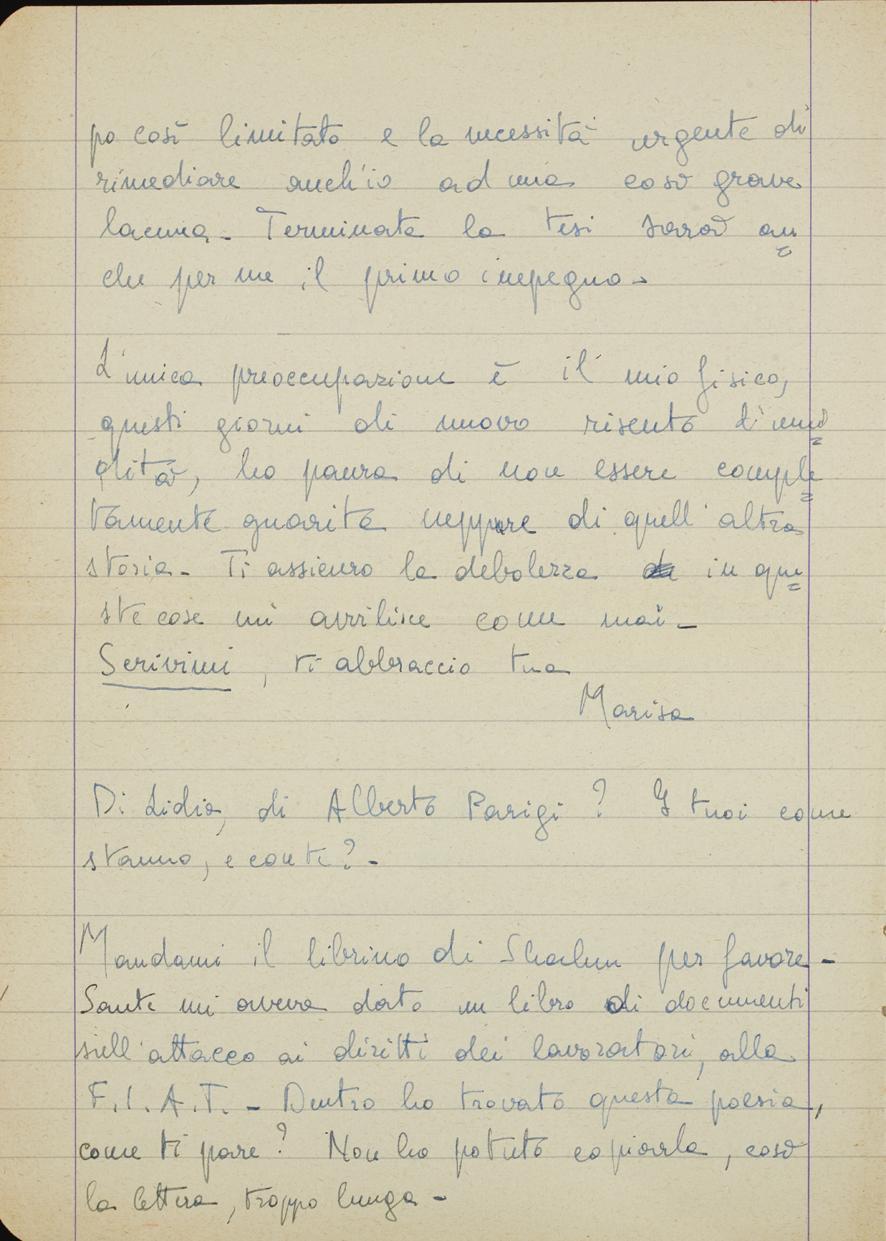 po così limitato e la necessità urgente di
rimediare anch'io ad una così grave
lacuna - Terminata la tesi sarà an=
che per me il primo impegno -
L'unica preoccupazione è il mio fisico,
questi giorni di nuovo risento d'umi=
dità, ho paura di non essere comple=
tamente guarita neppure di quell'altra
storia - Ti assicuro la debolezza in que=
ste cose mi avvilisce come mai -
Scrivimi, ti abbraccio tua
Marisa
Di Lidia, di Alberto Parigi? I tuoi come
stanno, e conti? -
Mandami il librino di per favore -
Sante mi aveva dato un libro di documenti
sull'attacco ai diritti dei lavoratori, alla
F.I.A.T. - Dentro ho trovato questa poesia,
come ti pare? Non ho potuto copiarla, così
la lettera, troppo lunga -